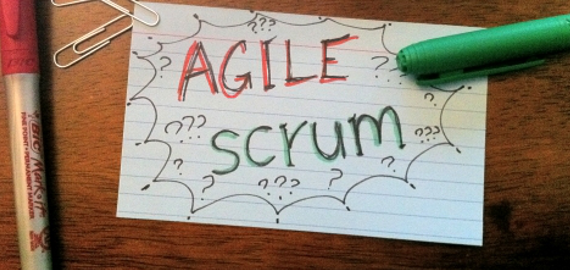 ???
AGILE
? ??
?
scrum
??? ???
? ?
? ??? ?
BIC
BIC Mark-it
FINE POINT • PERMANENT MARKER